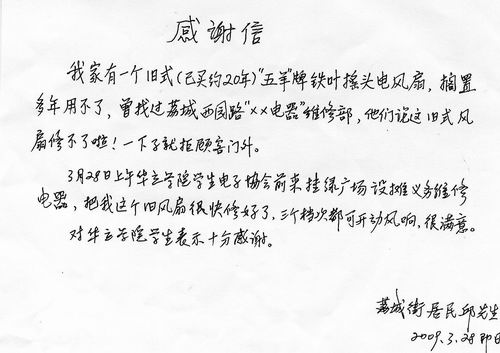 感谢信
我家有一个旧式(已买约20年)"五羊"牌铁叶摇头电风扇，搁置
多年用不了，曾找过荔城西园路"××电器"维修部，他们说这旧式风
扇修不了啦！一下子就拒顾客门外。
3月28日上午华立学院学生电子协会前来挂绿广场设摊义务维修
电器，把我这个旧风扇很快修好了，三个档次都可开动风响，很满意。
对华立学院学生表示十分感谢。
荔城街居民邱先生
2009.3.28即日